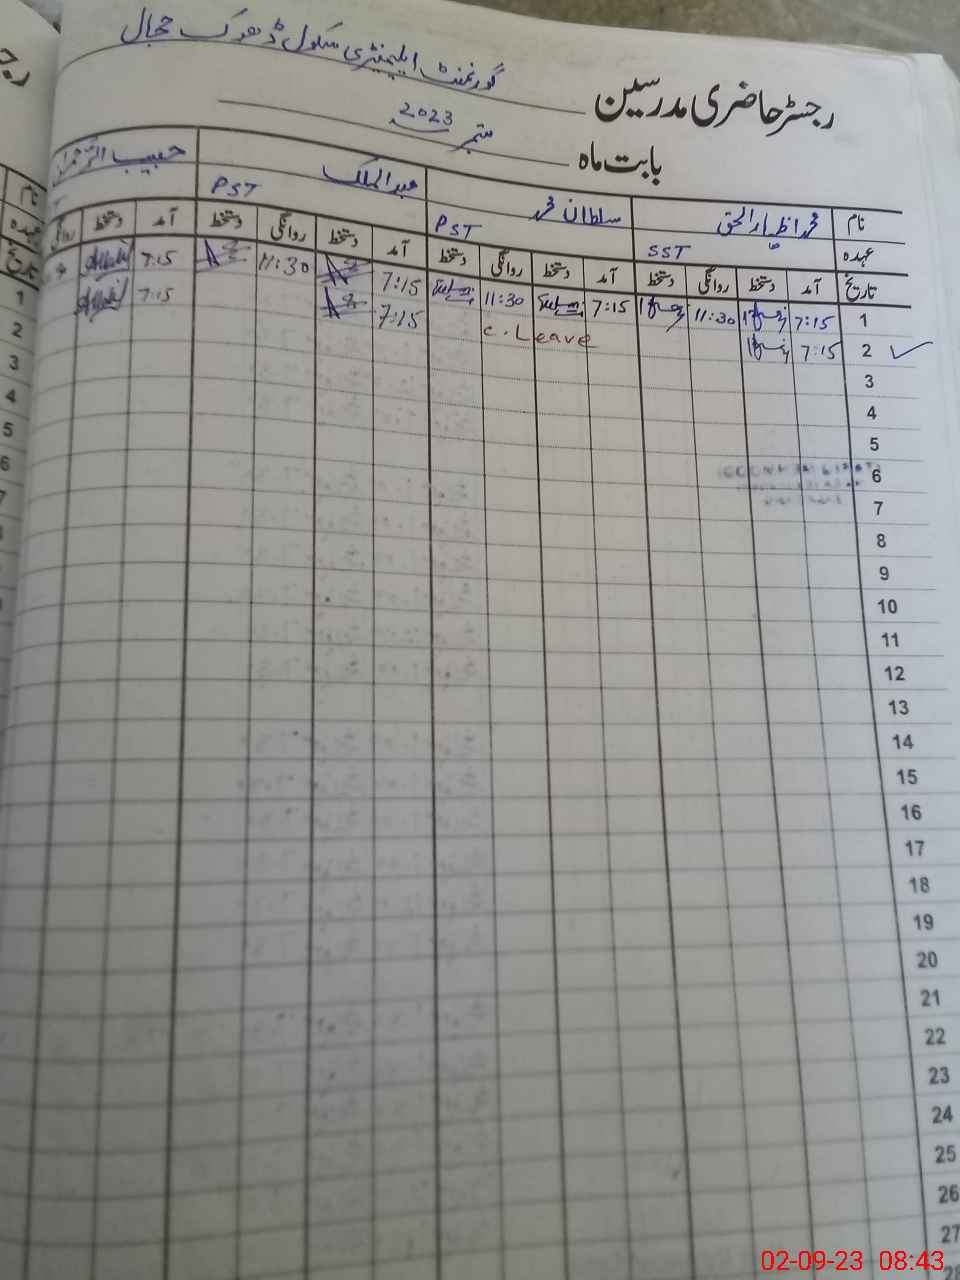 گورنمنٹ ایلیمنٹری سکول ڈھوک حجال
رجسٹر حاضری مدرسین
بابت ماہ ستمبر 2023
نام محمد اظہار الحق سلطان محمد عبدالملک حبیب الرحمان
عہدہ SST PST PST
تاریخ آمد دستخط روانگی دستخط آمد دستخط روانگی دستخط آمد دستخط روانگی دستخط آمد دستخط روانگی
1 7:15 11:30 7:15 11:30 7:15 11:30 7:15
2 7:15 C. Leave 7:15 7:15
3
4
5
6
7
8
9
10
11
12
13
14
15
16
17
18
19
20
21
22
23
24
25
26
27
02-09-23 08:43